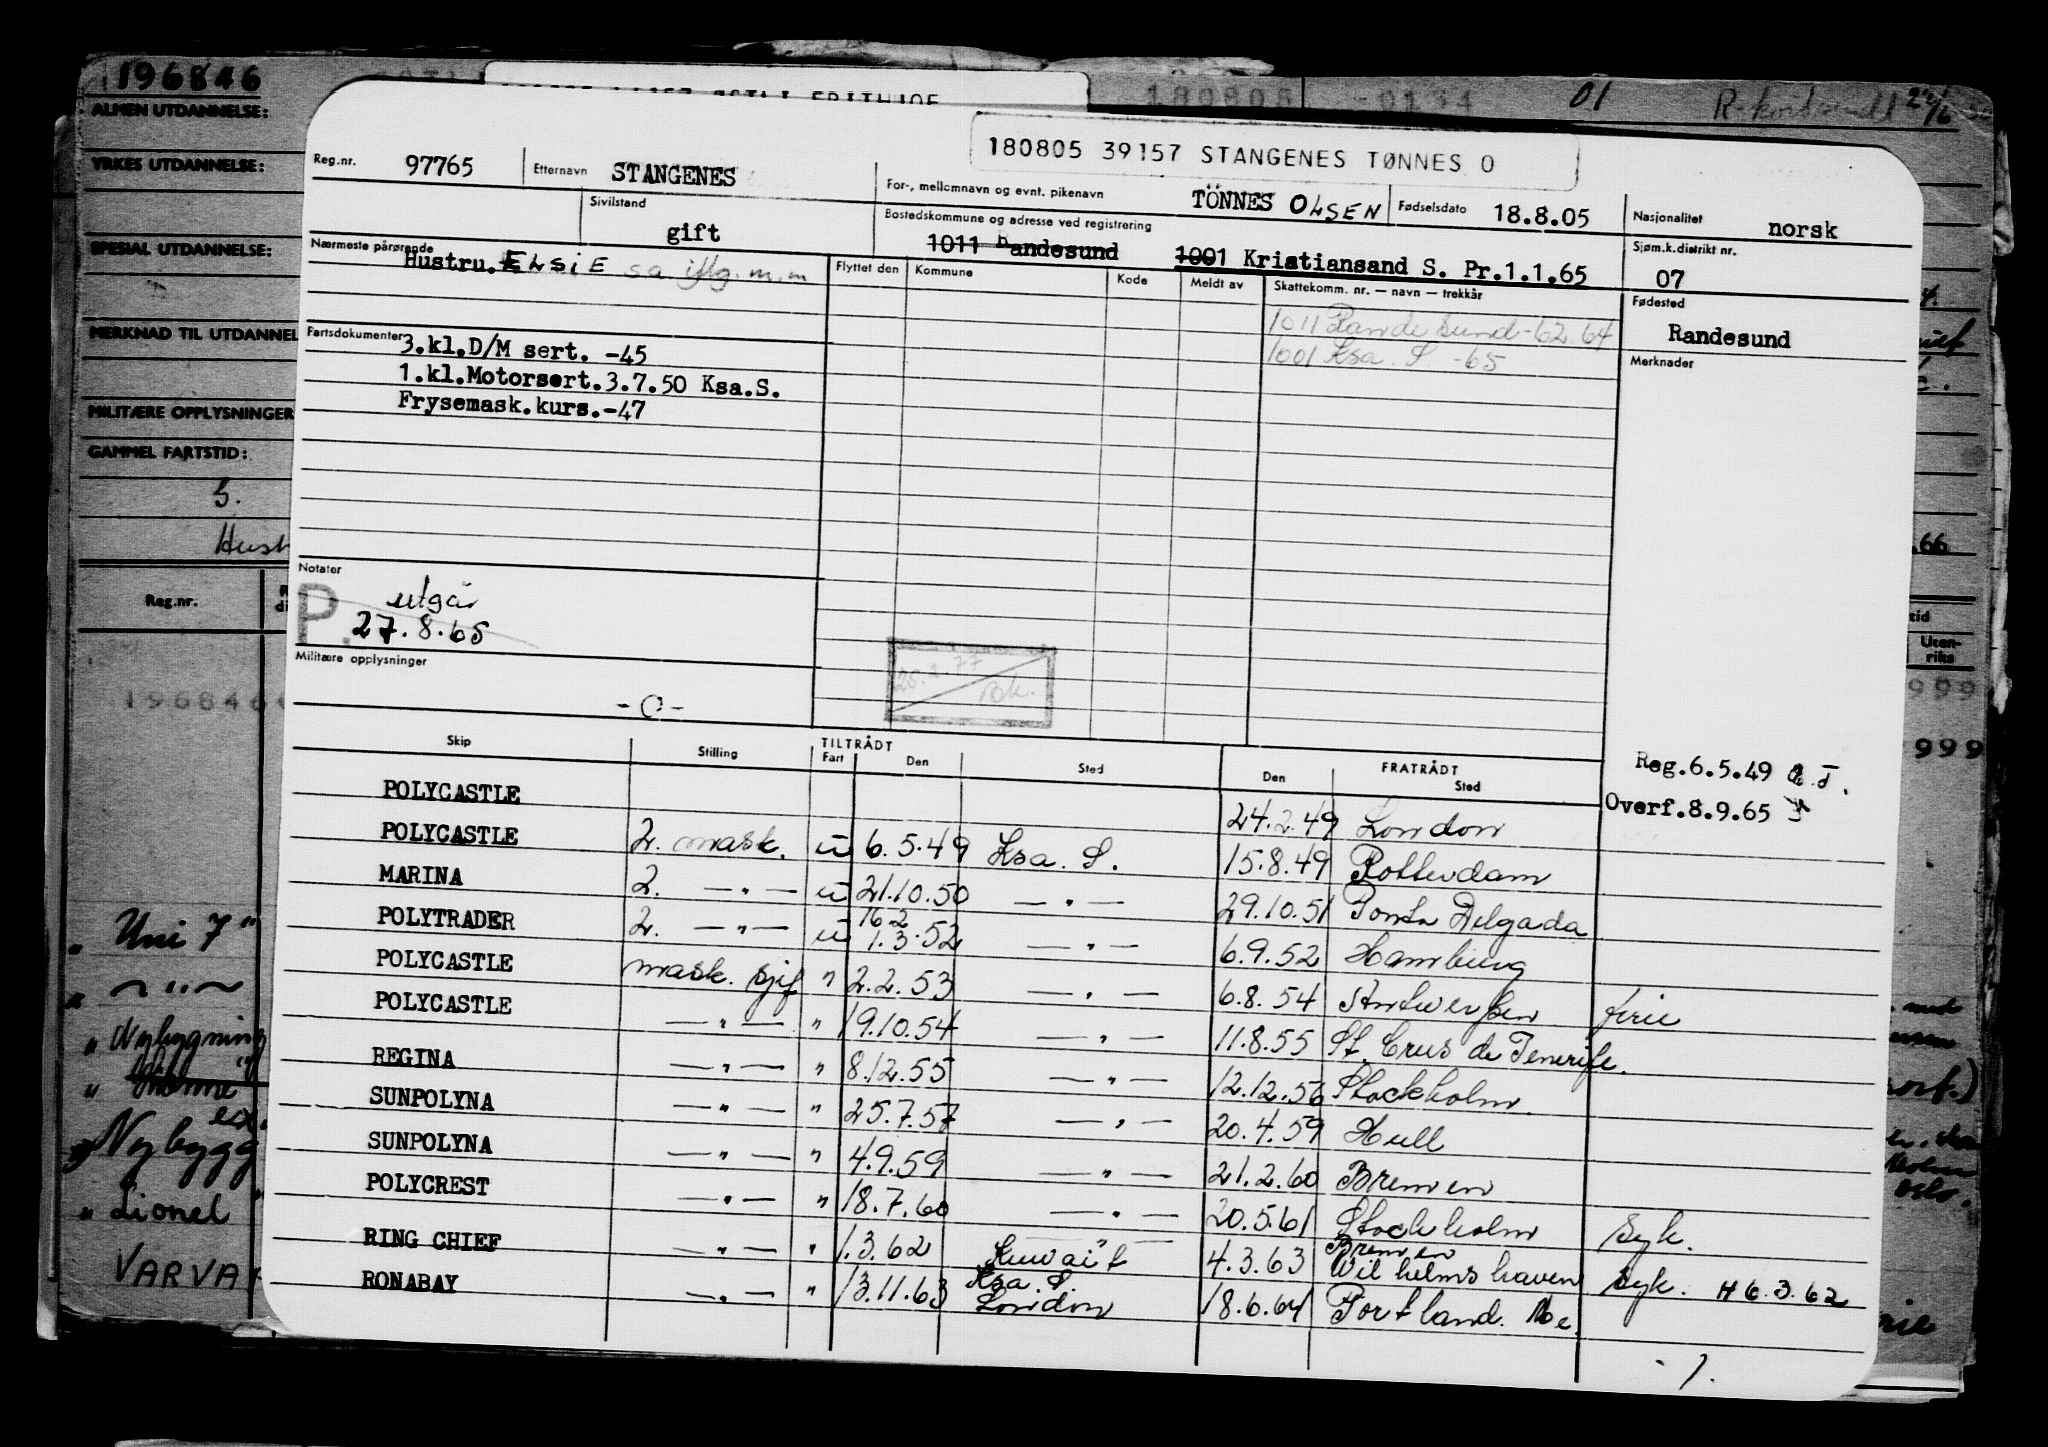 196846
180808 -0134
01
ALMEN UTDANNELSE:
YRKES UTDANNELSE:
SPESIAL UTDANNELSE:
MERKNAD TIL UTDANNEL
MILITÆRE OPPLYSNINGER
GAMMEL FARTSTID:
S.
Hust
Reg.nr.
196846
" Uni 7 "
" — " —
" Nybygning
Nybygg
" Lionel
VARVA
.66
tid
Uten-
riks
999
999
180805 39157 STANGENES TØNNES O
Reg.nr. 97765
Etternavn STANGENES
For-, mellomnavn og evnt. pikenavn TÖNNES OLSEN
Fødselsdato 18.8.05
Nasjonalitet norsk
Sivilstand gift
Bostedskommune og adresse ved registrering
1011 Randesund 1001 Kristiansand S. Pr.1.1.65
Sjøm.k.distrikt nr. 07
Nærmeste pårørende
Hustru. ELSIE s.a. iflg. m.m
Flyttet den Kommune Kode Meldt av Skattekomm. nr. — navn — trekkår
1011 Randesund -62.64
1001 Ksa. S -65
Fødested
Randesund
Merknader
Fartsdokumenter
3.kl.D/M sert. -45
1.kl.Motorsert.3.7.50 Ksa.S.
Frysemask.kurs.-47
Notater
P.
utgår
27.8.65
Militære opplysninger
-O-
25.2.77
Reg.6.5.49
Overf.8.9.65
Skip Stilling TILTRÅDT Fart Den Sted FRATRÅDT Den Sted
POLYCASTLE 24.2.49 London
POLYCASTLE 2. mask. u 6.5.49 Ksa. S. 15.8.49 Rotterdam
MARINA 2. — " — u 21.10.50 — " — 29.10.51 Ponta Delgada
POLYTRADER 2. — " — u 16.2 1.3.52 — " — 6.9.52 Hamburg
POLYCASTLE mask. sjef " 2.2.53 — " — 6.8.54 Antwerpen ferie
POLYCASTLE — " — " 19.10.54 — " — 11.8.55 St. Crus de Tenerife.
REGINA — " — " 8.12.55 — " — 12.12.56 Stockholm.
SUNPOLYNA — " — " 25.7.57 — " — 20.4.59 Hull
SUNPOLYNA — " — " 4.9.59 — " — 21.2.60 Bremen
POLYCREST — " — " 18.7.60 — " — 20.5.61 Stockholm Syk.
RING CHIEF — " — " 1.3.62 Kuwait 4.3.63 Bremen Wilhelmshaven Syk. H 6.3.62
RONABAY — " — " 13.11.63 Ksa. S London 18.6.64 Portland. Me.